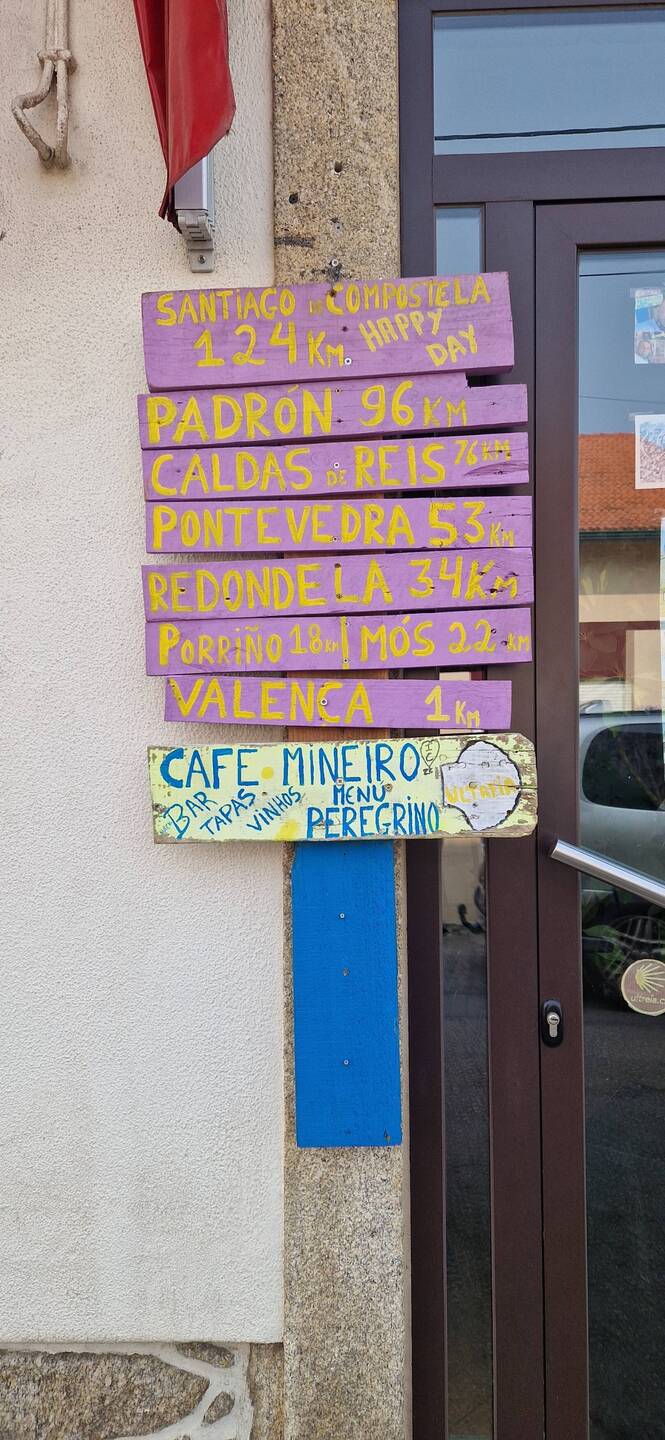 SANTIAGO DE COMPOSTELA
124 Km HAPPY DAY
PADRÓN 96 KM
CALDAS DE REIS 76 KM
PONTEVEDRA 53 Km
REDONDELA 34 Km
PORRIÑO 18 Km | MÓS 22 KM
VALENCA 1 Km
CAFE • MINEIRO
BAR TAPAS VINHOS MENÚ
PEREGRINO
ULTREIA
ultreia.c